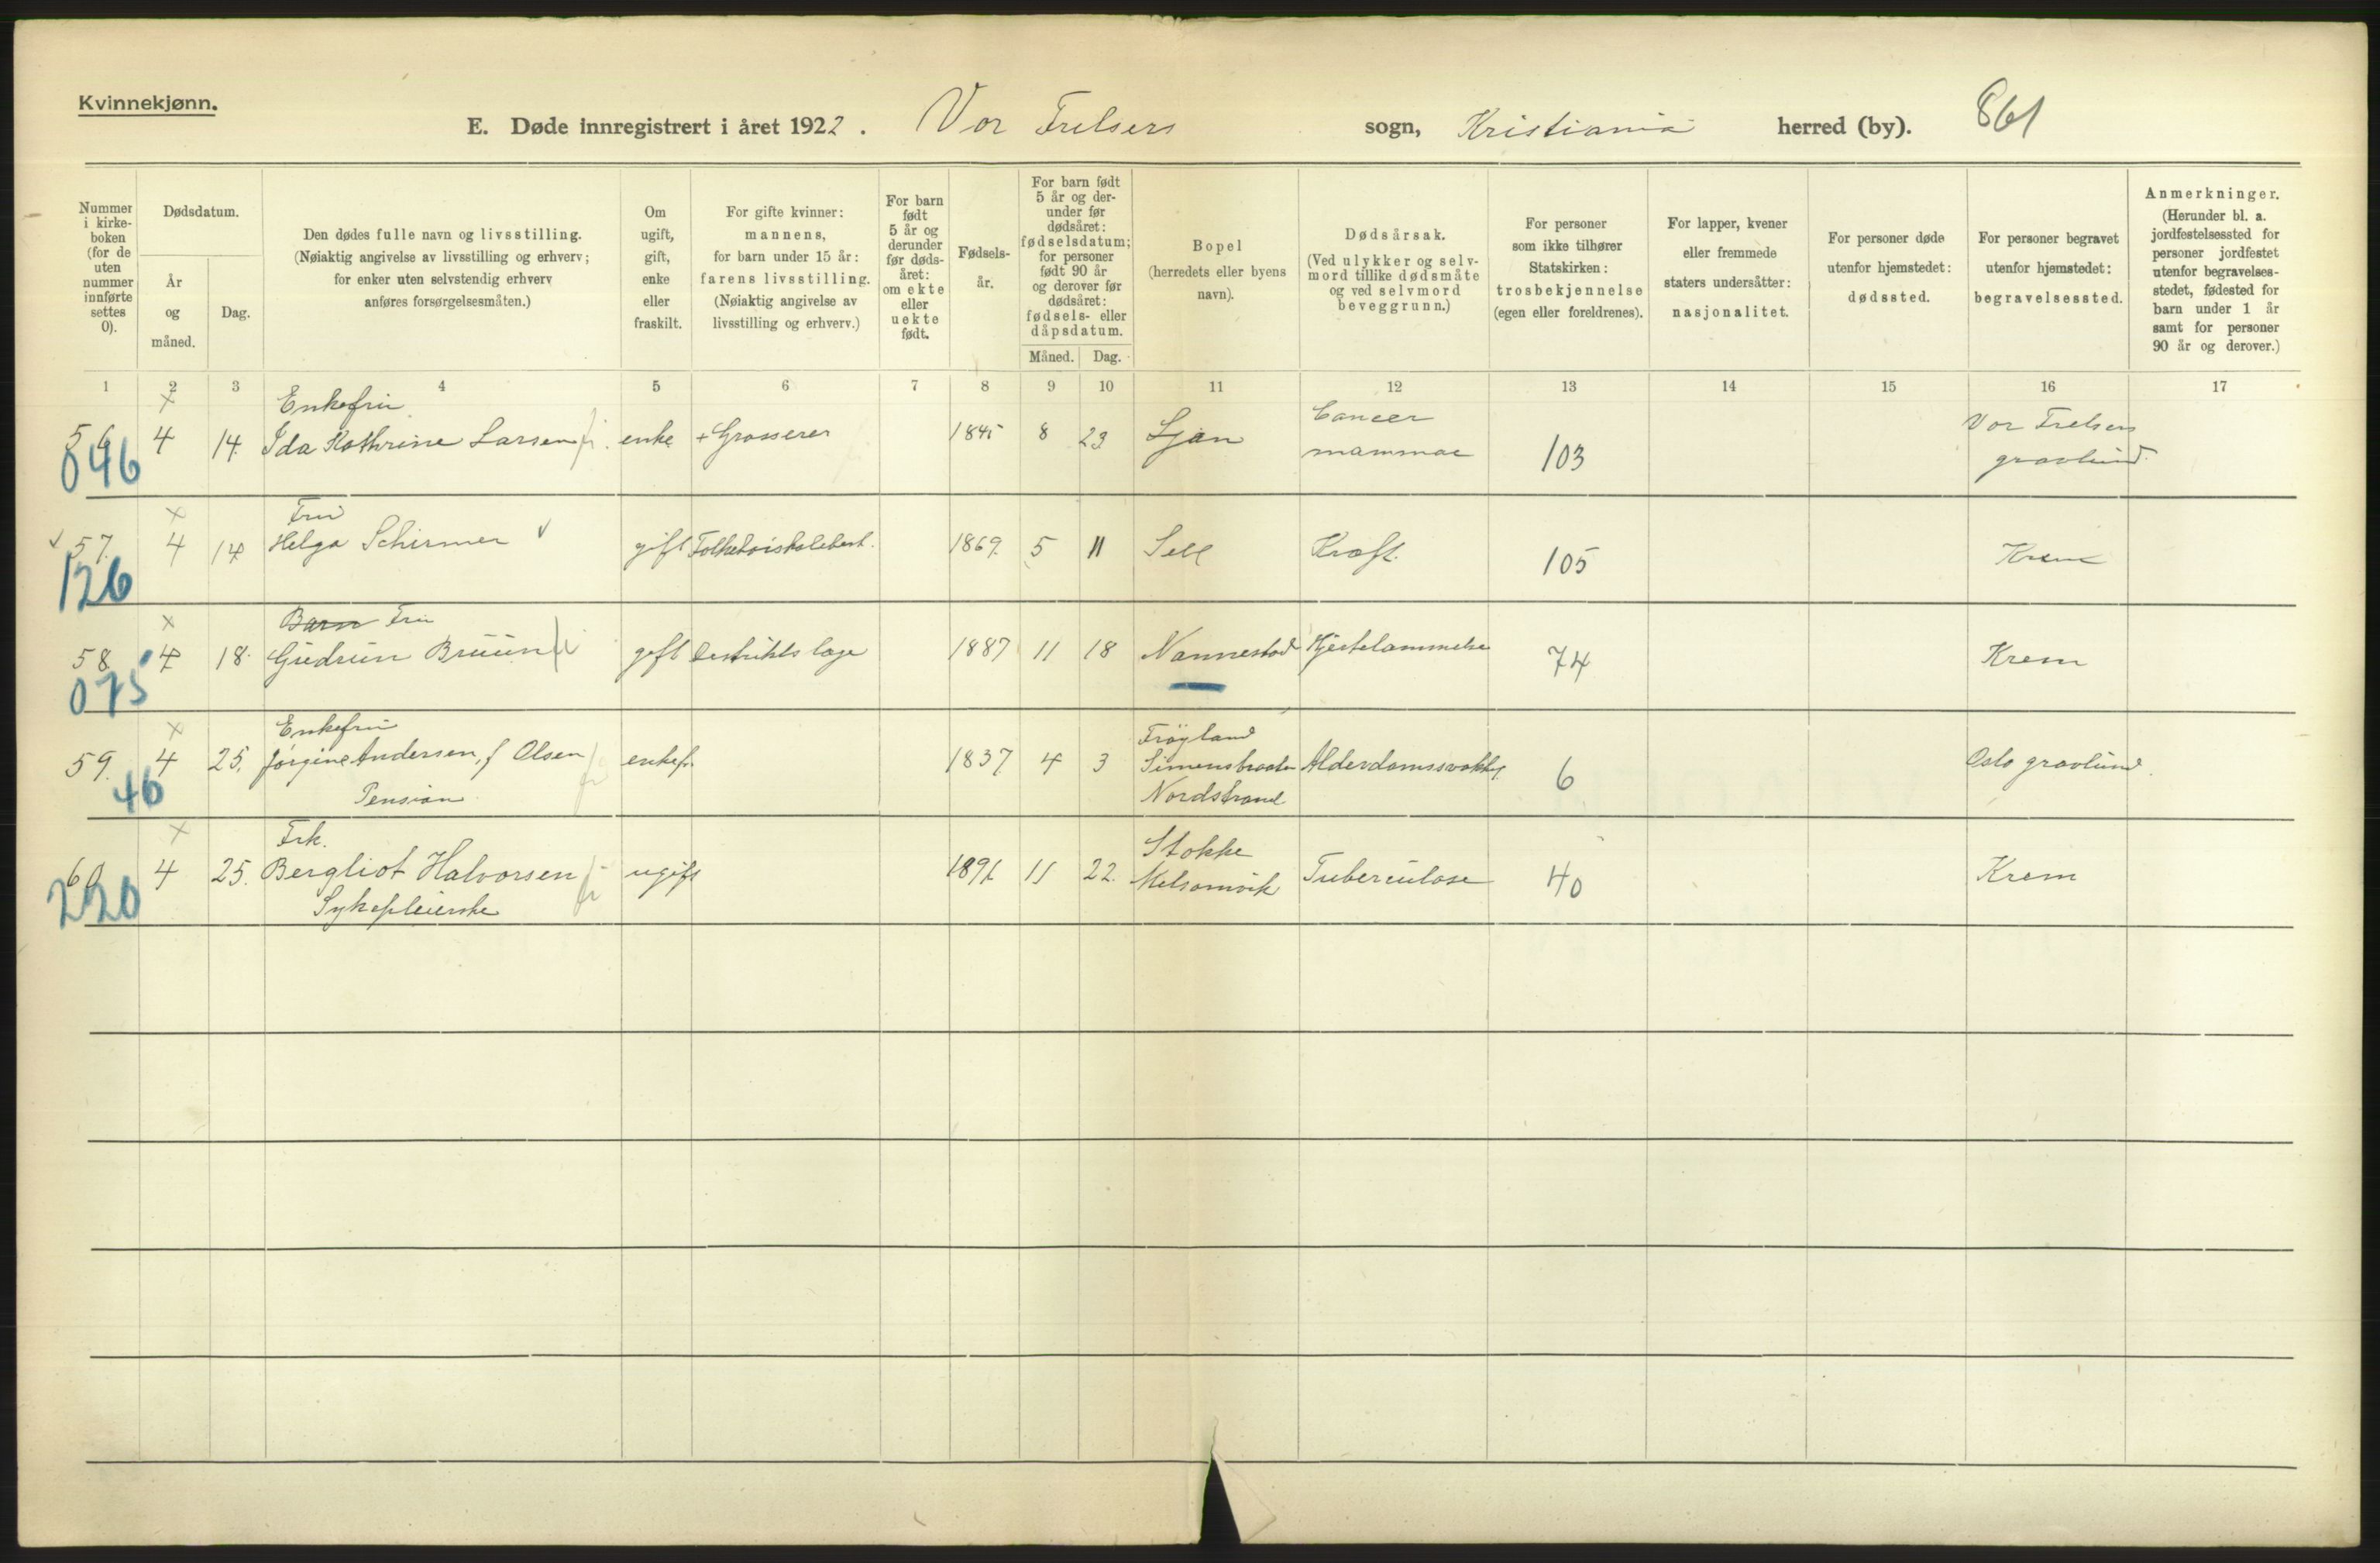 Kvinnekjønn.
E. Døde innregistrert i året 1922. Vor Frelsers sogn, Kristiania herred (by). 861
Nummer i kirkeboken (for de uten nummer innførte settes 0).
Dødsdatum.
År og måned.
Dag.
Den dødes fulle navn og livsstilling.
(Nøiaktig angivelse av livsstilling og erhverv;
for enker uten selvstendig erhverv
anføres forsørgelsesmåten.)
Om ugift, gift, enke eller fraskilt.
For gifte kvinner:
mannens,
for barn under 15 år:
farens livsstilling.
(Nøiaktig angivelse av
livsstilling og erhverv.)
For barn født 5 år og derunder før dødsåret: om ekte eller uekte født.
Fødselsår.
For barn født 5 år og derunder før dødsåret: fødselsdatum; for personer født 90 år og derover før dødsåret: fødsels- eller dåpsdatum.
Måned. Dag.
Bopel
(herredets eller byens
navn).
Dødsårsak.
(Ved ulykker og selvmord tillike dødsmåte
og ved selvmord
beveggrunn.)
For personer
som ikke tilhører
Statskirken:
trosbekjennelse
(egen eller foreldrenes).
For lapper, kvener
eller fremmede
staters undersåtter:
nasjonalitet.
For personer døde
utenfor hjemstedet:
dødssted.
For personer begravet
utenfor hjemstedet:
begravelsessted.
Anmerkninger.
(Herunder bl. a.
jordfestelsessted for
personer jordfestet
utenfor begravelsesstedet, fødested for
barn under 1 år
samt for personer
90 år og derover.)
1 2 3 4 5 6 7 8 9 10 11 12 13 14 15 16 17
x Enkefru Cancer Vor Frelsers
56 4 14. Ida Kathrine Larsen enke + Grosserer 1845 8 23 Ljan mammae 103 gravlund.
046
x Fru
57. 4 14 Helga Schirmer gift 1869. 5 11 Sell Kræft. 105 Krem
126
x Barn Fru
58 4 18. Gudrun Bruun gift Destriktslæge 1887 11 18 Nannestad Hjertelammelse 74 Krem
075
x Enkefru Frøyland
59. 4 25. Jørgine Andersen, f Olsen enkef. 1837 4 3 6 Oslo gravlund.
46 Pension Nordstrand
x Frk. Stokke
60 4 25. Bergliot Halvorsen ugift 1891 11 22. Melsomvik Tuberculose 40 Krem
220 Sykepleierske